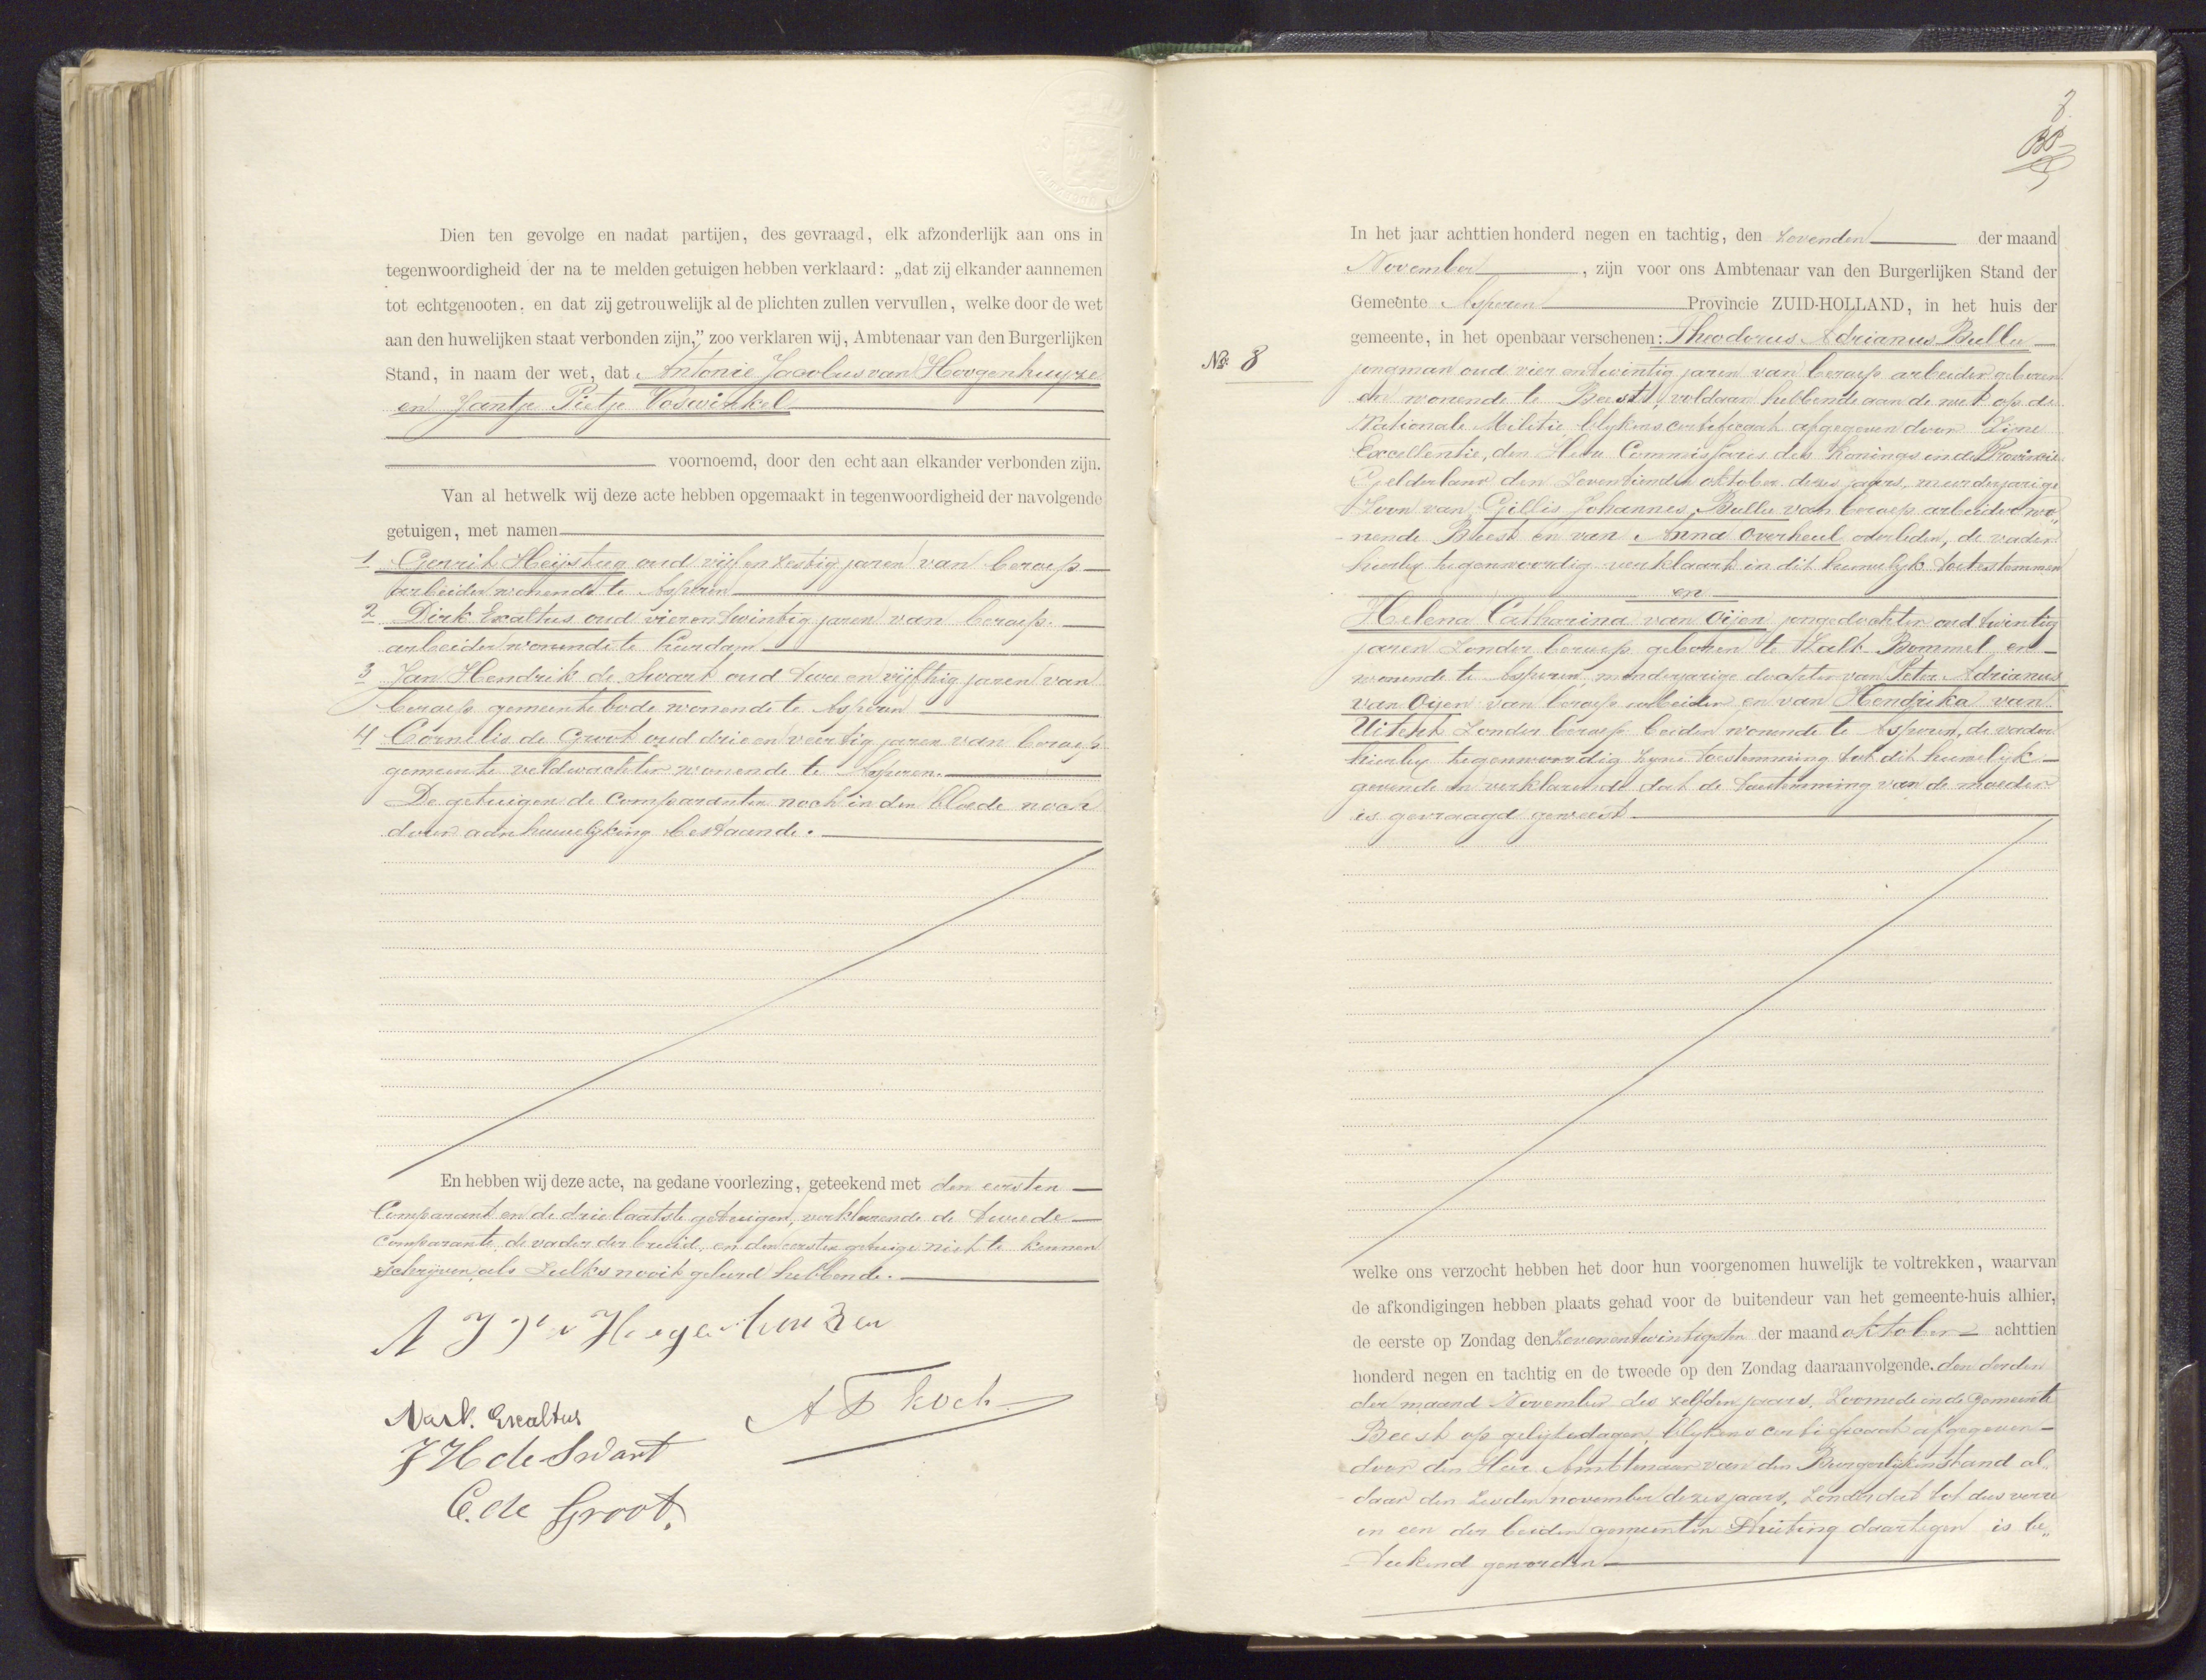 Dien ten gevolge en nadat partijen, des gevraagd, elk afzonderlijk aan ons in
tegenwoordigheid der na te melden getuigen hebben verklaard: „dat zij elkander aannemen
tot echtgenooten, en dat zij getrouwelijk al de plichten zullen vervullen, welke door de wet
aan den huwelijken staat verbonden zijn," zoo verklaren wij, Ambtenaar van den Burgerlijken
Stand, in naam der wet, dat Antonie Jacobus van Hoogenhuyze
en Jantje Pietje Voswinkel
voornoemd, door den echt aan elkander verbonden zijn.
Van al hetwelk wij deze acte hebben opgemaakt in tegenwoordigheid der navolgende
getuigen, met namen
1 Gerrit Heijstug oud vijf en zestig jaren van beroep
arbeider wonende te Asperen
2 Dirk Exaltus oud vier en twintig jaren van beroep
arbeider wonende te
3 Jan Hendrik de Swart oud twee en vijftig jaren van
beroep gemeentebode wonende te Asperen
4 Cornelis de Groot oud drie en veertig jaren van beroep
gemeente veldwachter wonende te Asperen.
De getuigen de Comparanten noch in den bloede noch
door aanhuwelijking bestaande.
En hebben wij deze acte, na gedane voorlezing, geteekend met den eersten
Comparant en de drie laatste getuigen, verklarende de tweede
Comparante, de vader der bruid, en den eersten getuige niet te kennen
schrijven als zulks nooit geleerd hebbende.
A J v Hoogenhuuzen
Exaltus
A F Koch
J H de Swart
C. de Groot.
8
In het jaar achttien honderd negen en tachtig, den zevenden der maand
November, zijn voor ons Ambtenaar van den Burgerlijken Stand der
Gemeente Asperen Provincie ZUID-HOLLAND, in het huis der
gemeente, in het openbaar verschenen: Theodorus Adrianus Bullee
No. 8
jongman oud vier en twintig jaren van beroep arbeider geboren
en wonende te Beest, voldaan hebbende aan de wet op de
Nationale Militie blijkens certificaat afgegeven door Zijne
Excellentie, den Heer Commissaris des Konings in de Provincie
Gelderland den zeventienden oktober dezes jaars, meerderjarige
Zoon van Gillis Johannes Bullee van beroep arbeider wo„
nende Beest en van Anna Overheul overleden, de vader
hierbij tegenwoordig verklaart in dit huwelijk toetestemmen
en
Helena Catharina van Oijen jongedochter oud twintig
jaren zonder beroep geboren te Zalt Bommel en
wonende te Asperen, minderjarige dochter van Peter Adrianus
van Oijen van beroep arbeider en van Hendrika van
Uitert zonder beroep beiden wonende te Asperen, de vader
hierbij tegenwoordig zijne toestemming tot dit huwelijk
gevende en verklarende dat de toestemming van de moeder
is gevraagd geweest
welke ons verzocht hebben het door hun voorgenomen huwelijk te voltrekken, waarvan
de afkondigingen hebben plaats gehad voor de buitendeur van het gemeente-huis alhier,
de eerste op Zondag den zevenentwintigsten der maand oktober achttien
honderd negen en tachtig en de tweede op den Zondag daaraanvolgende, den derden
der maand November des zelfden jaars. Zoomede in de Gemeente
Beest op gelijke dagen, blijkens certificaat afgegeven
door den Heer Ambtenaar van den Burgerlijken stand al„
daar den zesden november dezes jaars, zonder dat tot dus verre
in een der beiden gemeenten Stuiting daartegen is be„
teekend geworden